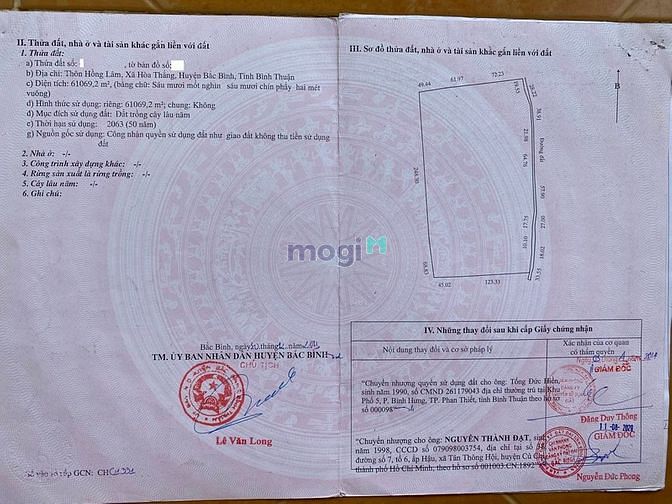 II. Thửa đất, nhà ở và tài sản khác gắn liền với đất
1. Thửa đất:
a) Thửa đất số: , tờ bản đồ số:
b) Địa chỉ: Thôn Hồng Lâm, Xã Hòa Thắng, Huyện Bắc Bình, Tỉnh Bình Thuận
c) Diện tích: 61069,2 m², (bằng chữ: Sáu mươi mốt nghìn sáu mươi chín phẩy hai mét
vuông)
d) Hình thức sử dụng: riêng: 61069,2 m²; chung: Không
đ) Mục đích sử dụng đất: Đất trồng cây lâu năm
e) Thời hạn sử dụng: 2063 (50 năm)
g) Nguồn gốc sử dụng: Công nhận quyền sử dụng đất như giao đất không thu tiền sử dụng
đất
2. Nhà ở: -/-
3. Công trình xây dựng khác: -/-
4. Rừng sản xuất là rừng trồng: -/-
5. Cây lâu năm: -/-
6. Ghi chú:
Bắc Bình, ngày tháng năm
TM. ỦY BAN NHÂN DÂN HUYỆN BẮC BÌNH
CHỦ TỊCH
Lê Văn Long
Số vào sổ cấp GCN: CH
III. Sơ đồ thửa đất, nhà ở và tài sản khác gắn liền với đất
B
49.44 61.97 72.23
19.55 26.22
38.91
21.98
đường đất
64.76
248.30
27.00
17.75
10.10 18.02
68.83
33.55
45.02 123.33
mogi
IV. Những thay đổi sau khi cấp Giấy chứng nhận
Nội dung thay đổi và cơ sở pháp lý
Xác nhận của cơ quan
có thẩm quyền
GIÁM ĐỐC
"Chuyển nhượng quyền sử dụng đất cho ông: Tống Đức Hiền,
sinh năm 1990, số CMND 261179043 địa chỉ thường trú tại Khu
Phố 5, P. Bình Hưng, TP. Phan Thiết, tỉnh Bình Thuận theo hồ sơ
số 000098
Đặng Duy Thông
GIÁM ĐỐC
"Chuyển nhượng cho ông: NGUYỄN THÀNH ĐẠT, sinh
năm 1998, CCCD số 079098003754, địa chỉ tại số
đường số 7, tổ 6, ấp Hậu, xã Tân Thông Hội, huyện Củ Chi
thành phố Hồ Chí Minh, theo hồ sơ số 001003.CN.1892"
Nguyễn Đức Phong